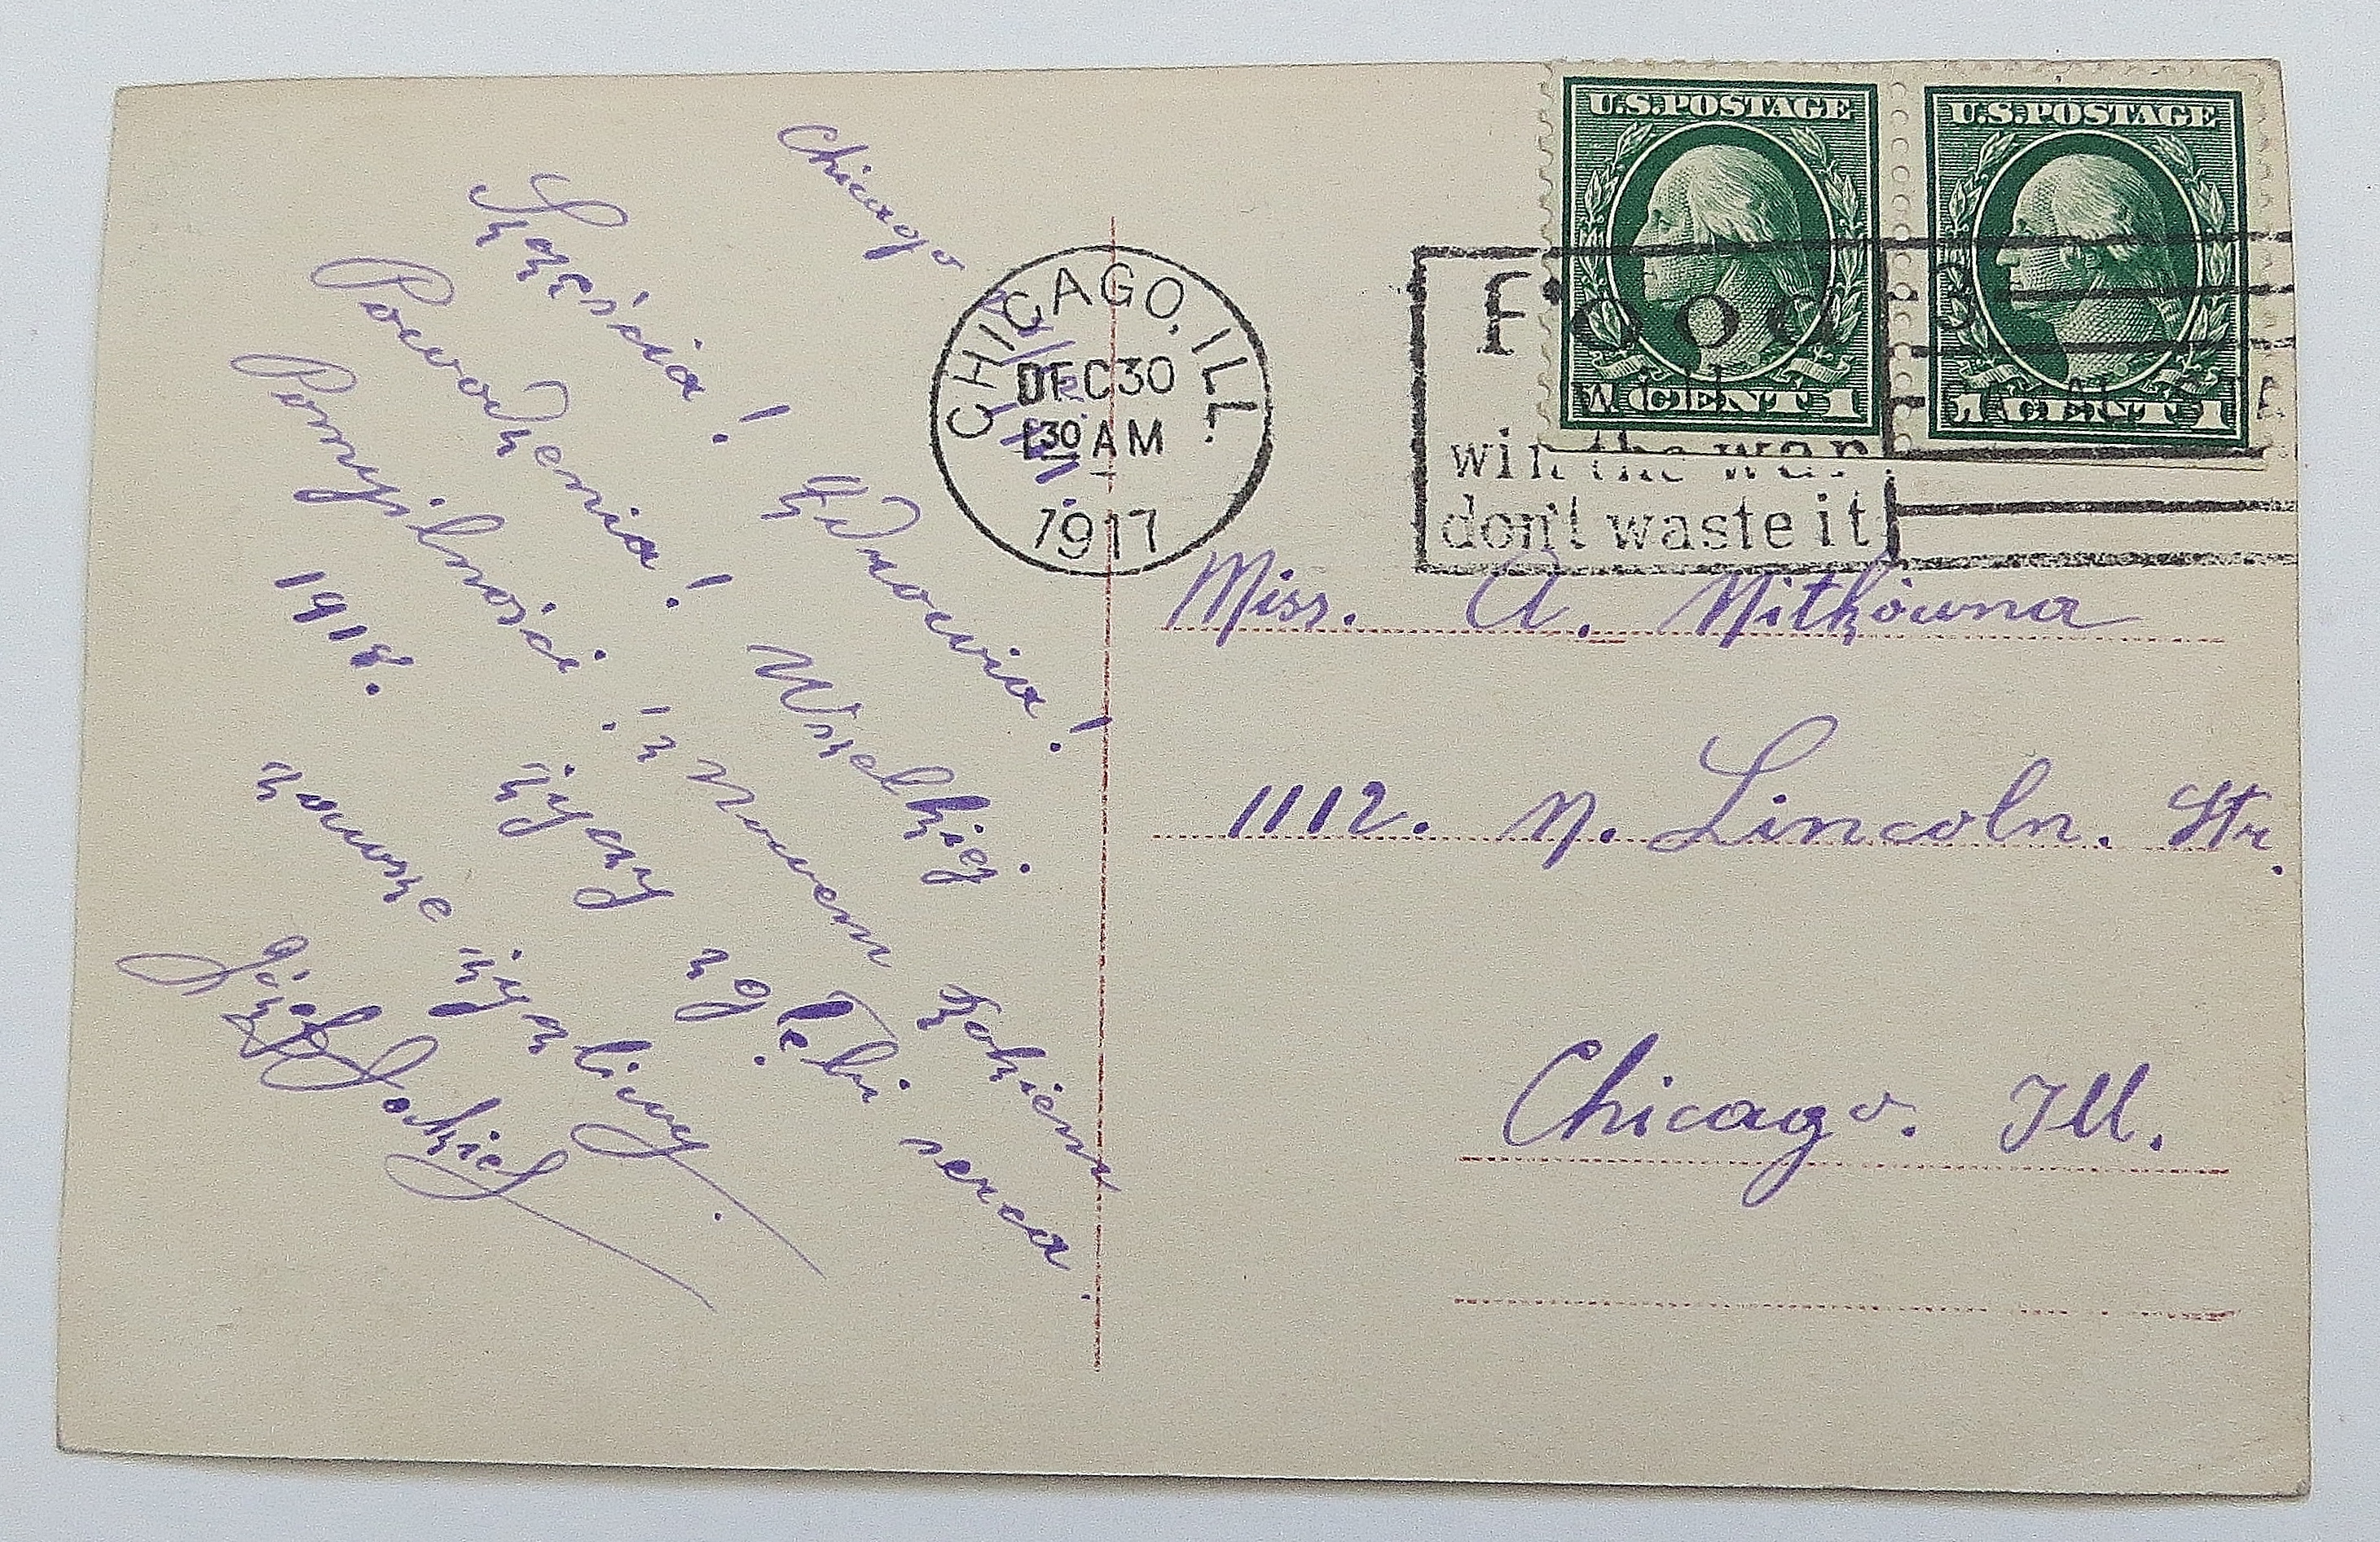 Chicago
Szczścia! Zdrowia!
Powodzenia! Wszelkiej
Pomyślności! z nowem Rokiem
1918. życzy z głębi serca
zawsze życzliwy.
Józef
CHICAGO, ILL.
DEC 30
30 AM
1917
U.S. POSTAGE
1 CENT 1
U.S. POSTAGE
1 CENT 1
Food
will
win the war
don't waste it
Miss. A. Nitkówna
1112. N. Lincoln. Str.
Chicago. Ill.